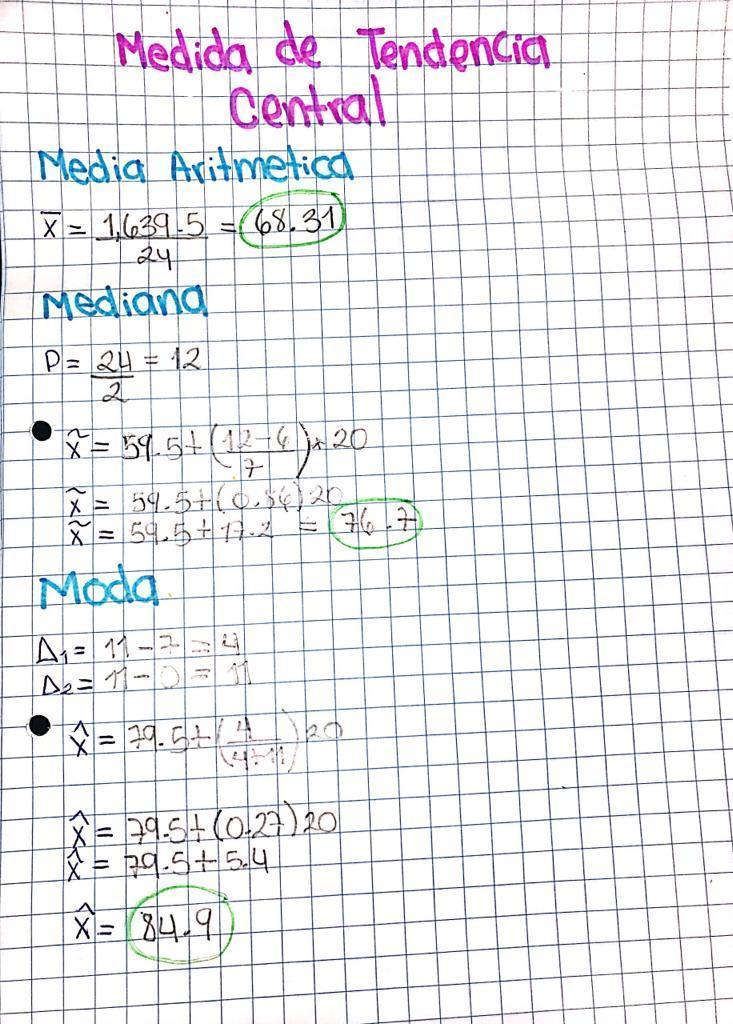 Medida de Tendencia
Central
Media Aritmetica
x̄ = 1,639.5 / 24 = 68.31
Mediana
P = 24 / 2 = 12
x̃ = 59.5 + (12 - 6 / 7) * 20
x̃ = 59.5 + (0.86) 20
x̃ = 59.5 + 17.2 = 76.7
Moda
Δ₁ = 11 - 7 = 4
Δ₂ = 11 - 0 = 11
x̂ = 79.5 + (4 / 4+11) 20
x̂ = 79.5 + (0.27) 20
x̂ = 79.5 + 5.4
x̂ = 84.9